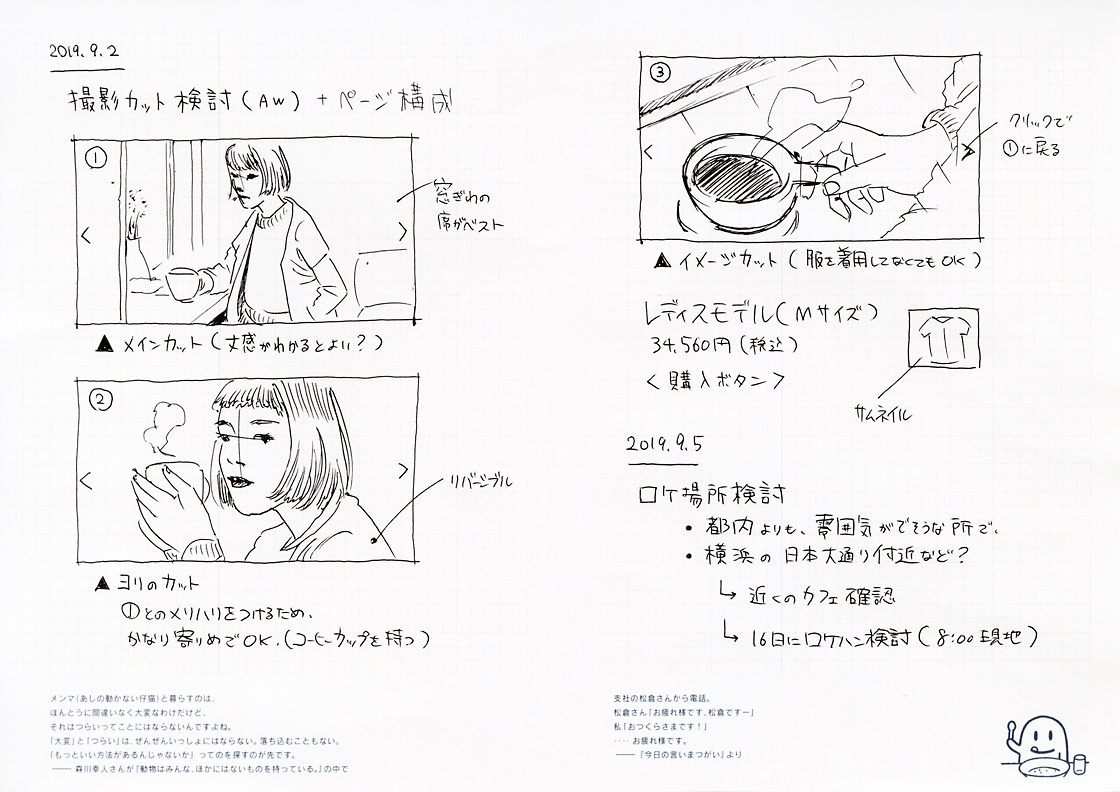 2019.9.2
撮影カット検討(AW)+ページ構成
①
窓ぎわの
席がベスト
<
>
▲メインカット(丈感がわかるとよい?)
②
<
>
リバーシブル
▲ヨリのカット
①とのメリハリをつけるため、
かなり寄りめでOK.(コーヒーカップを持つ)
メンマ(あしの動かない仔猫)と暮らすのは、
ほんとうに間違いなく大変なわけだけど、
それはつらいってことにはならないんですよね。
「大変」と「つらい」は、ぜんぜんいっしょにはならない。落ち込むこともない。
「もっといい方法があるんじゃないか」ってのを探すのが先です。
―― 森川幸人さんが『動物はみんな、ほかにはないものを持っている。』の中で
③
<
>
クリックで
①に戻る
▲イメージカット(服を着用してなくてもOK)
レディスモデル(Mサイズ)
34,560円(税込)
<購入ボタン>
サムネイル
2019.9.5
ロケ場所検討
• 都内よりも、雰囲気がでそうな所で、
• 横浜の日本大通り付近など?
↳ 近くのカフェ確認
↳ 16日にロケハン検討(8:00現地)
支社の松倉さんから電話。
松倉さん「お疲れ様です、松倉ですー」
私「おつくらさまです!」
‥‥お疲れ様です。
―― 『今日の言いまつがい』より